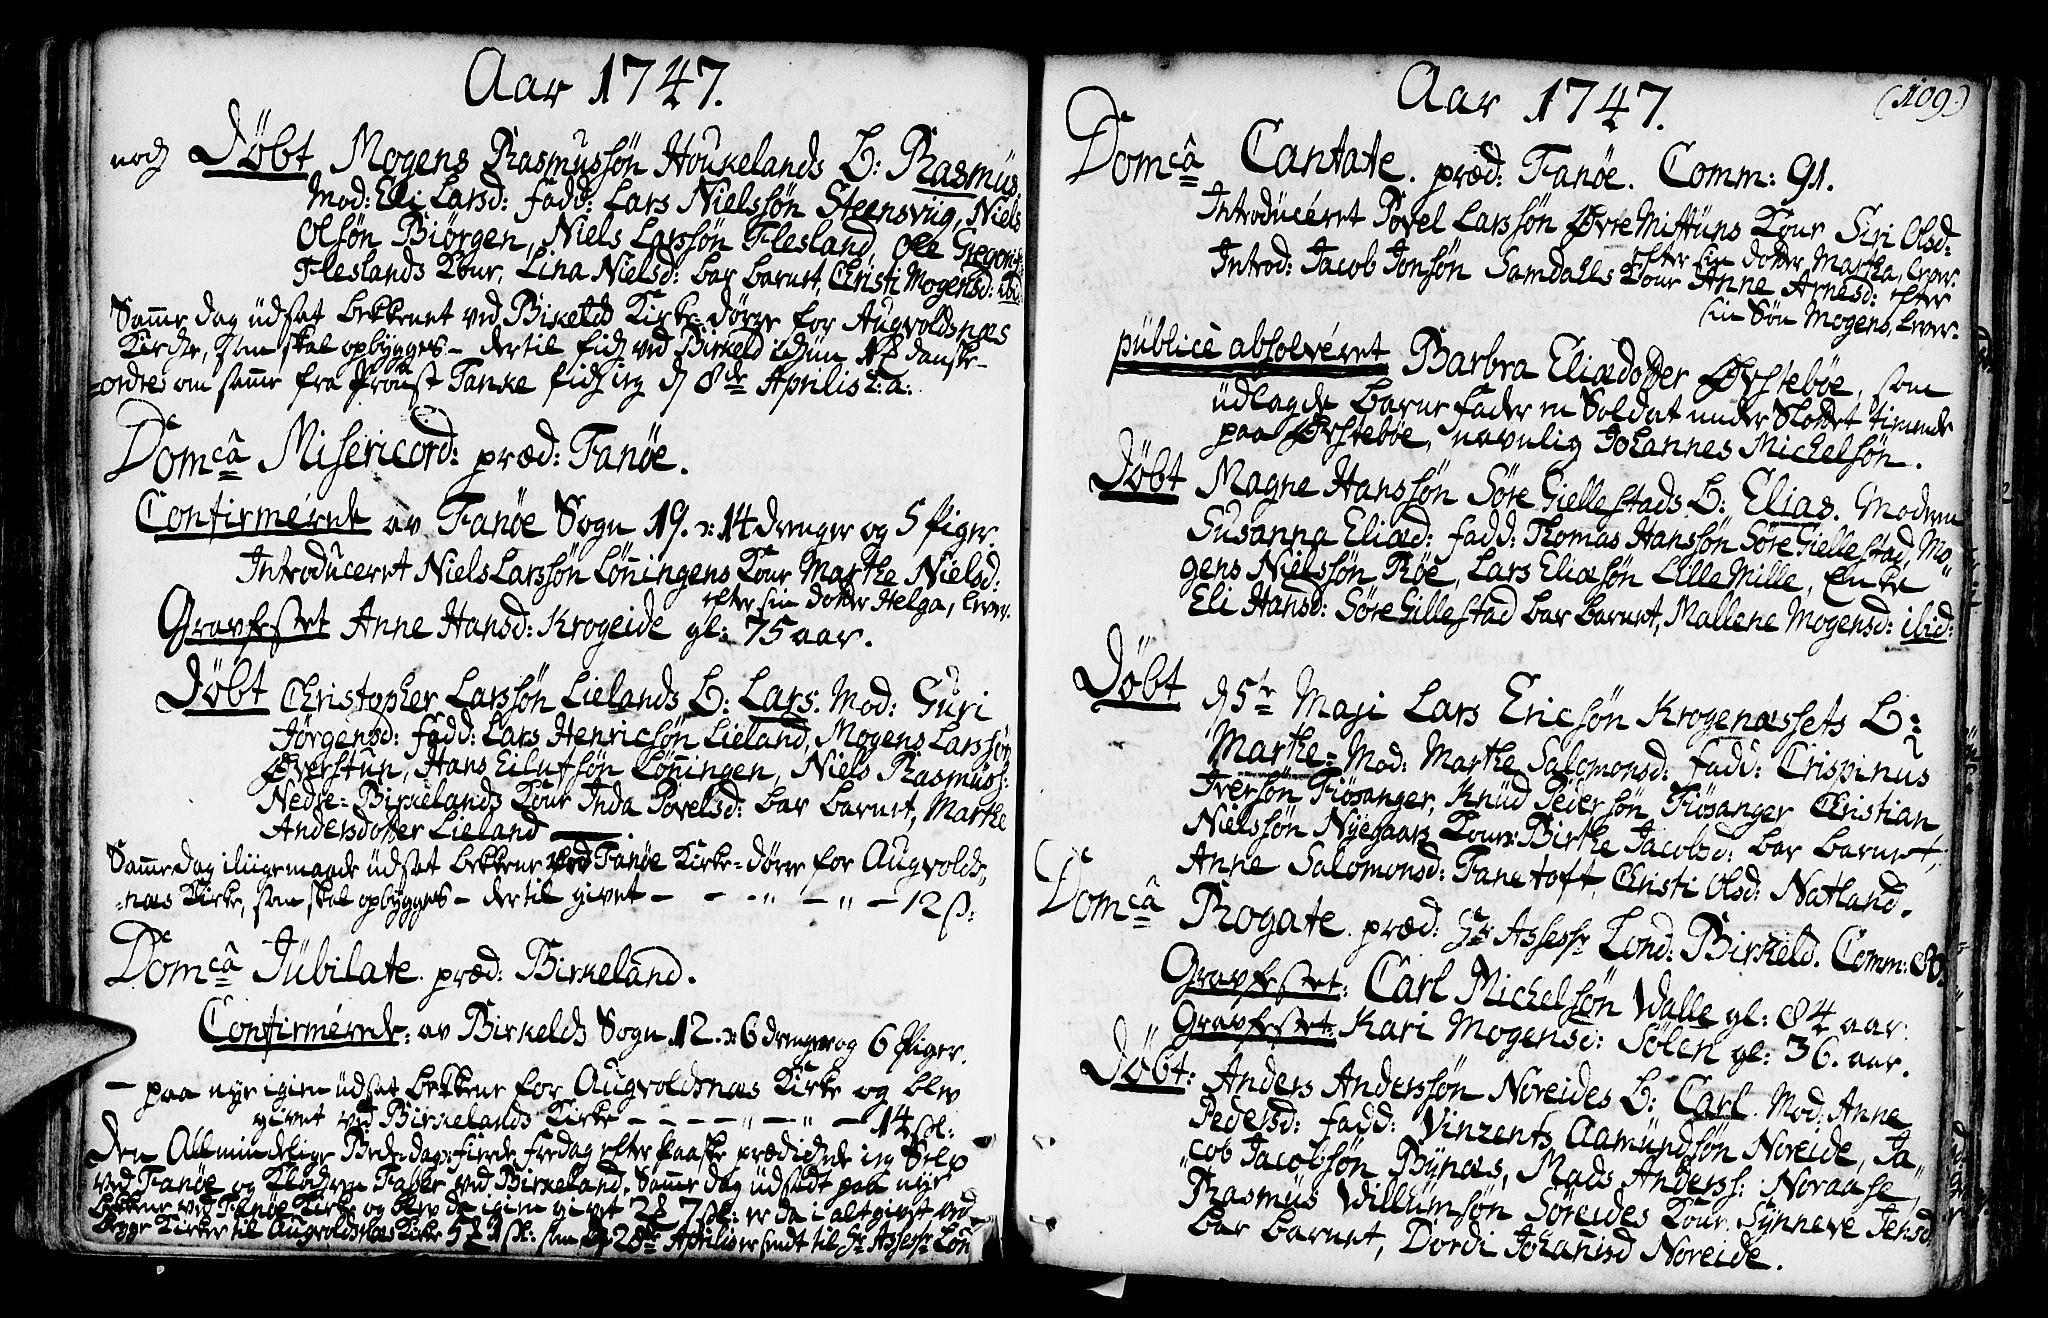 Aar 1747.
noch Døbt Mogens Rasmussøn Houkelands B: Rasmus.
Mod: Eli Larsd: fadd: Lars Nielssøn Steensviig, Niels
Olsøn Biörgen, Niels Larssøn Flesland, Ole Gregori
Fleslands Kone, Lina Nielsd: bar barnet, Christi Mogensd: ibid:
Samme dag udsat bekkenet ved Birkeld Kirke-dörre for Augvoldsnæs
Kirche, som skal opbygges - dertil fich ved Birkeld ichun danske-
ordre om samme fra Provst Tanke fich ieg d 8de Aprilis h: a:
Domcâ Misericord: præd: Fanöe.
Confirmérede av Fanöe Sogn 19. ɔ: 14 drenger og 5 Piger.
Introduceret Niels Larssøn Löningens Kone Marthe Nielsd:
efter sin dotter Helga, lever.
Gravfestet Anne Hansd: Krogeide gl: 75 aar.
Døbt Christopher Larssøn Lielands B: Lars. Mod: Guri
Jörgensd: fadd: Lars Henricsøn Lieland, Mogens Larssøn
Øverstun, Hans Eilufsøn Löningen, Niels Rasmuss:
Nedre-Birkelands Kone Inda Povelsd: bar barnet, Marthe
Andersdotter Lieland
Samme dag iligemaade udsat bekkene ved Fanöe Kirke-dörre for Augvolds-
næs Kirke, som skal opbygges - dertil givet - - - " - " - 12 ß:
Domcâ Jubilate. præd: Birkeland.
Confirmérede: av Birkelds Sogn 12. ɔ: 6 drenger og 6 Piger.
- paa nye igien udsat bekkene for Augvoldsnæs Kirke og blev
givet ved Birkelands Kirke - - - - " - " - 14 ß:
Den Allmindelige Bededag: fierde fredag efter Paaske prædickede ieg Selv
ved Fanöe og Klochren Faber ved Birkeland. Samme dag udsadt paa nye
bekkene ved Fanöe Kirke og blev da igien givet 2 7 ß: er da i alt givet ved
begge Kirker til Augvoldsnæs Kirke 5 1 ß: som d 28de Aprilis er sendt til Hr Assessr Lön
Aar 1747.
(109)
Domcâ Cantate. præd: Fanöe. Comm: 91.
Introdúcéret Povel Larssøn Øvre Mittuns Kone Siri Olsd:
efter sin dotter Martha, lever.
Introd: Jacob Jonsøn Samdahls Kone Anne Arnesd: efter
sin Søn Mogens, lever.
publicè absolvéret Barbra Eliædotter Øvstebøe, som
udlagde barne fader en Soldat under Slottet tienende
paa Øvstebøe, navnlig Johannes Michelsøn.
Døbt Magne Hanssøn Søre Giellestads B: Elias. Moderen
Susanna Eliæd: fadd: Thomas Hanssøn Søre Giellestad, Mo-
gens Nielssøn Röe, Lars Eliæsøn Lille Mille, Enke
Eli Hansd: Søre Gillestad bar barnet, Mallene Mogensd: ibid:
Døbt d 5te Maji Lars Ericsøn Krogenæssets B:
Marthe: Mod: Marthe Salomonsd: fadd: Crispinus
Iversøn Fiösanger, Knud Pedersøn Fiösanger Christian
Nielssøn Nyegaars Kone: Birthe Jacobsd: bar barnet,
Anne Salomonsd: Fanetoft, Christi Olsd: Natland.
Domcâ Rogate. præd: Hr Assessr Lond: Birkeld. Comm: 80.
Gravfestet: Carl Michelsøn Walle gl: 84 aar.
Gravfestet: Kari Mogensd: Sölen gl: 36. aar.
Døbt: Anders Anderssøn Noreides B: Carl. Mod: Anne
Pedersd: fadd: Vinzents Aamundsøn Noreide, Ja-
cob Jacobsøn Bynæs, Mads Anderss: Noraase,
Rasmus Willumsøn Söreides Kone Synneve Jensd:
bar barnet, Dordi Johannsd Noreide.